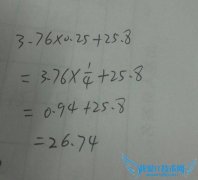 3.76×0.25+25.8
=3.76×1/4+25.8
=0.94+25.8
=26.74